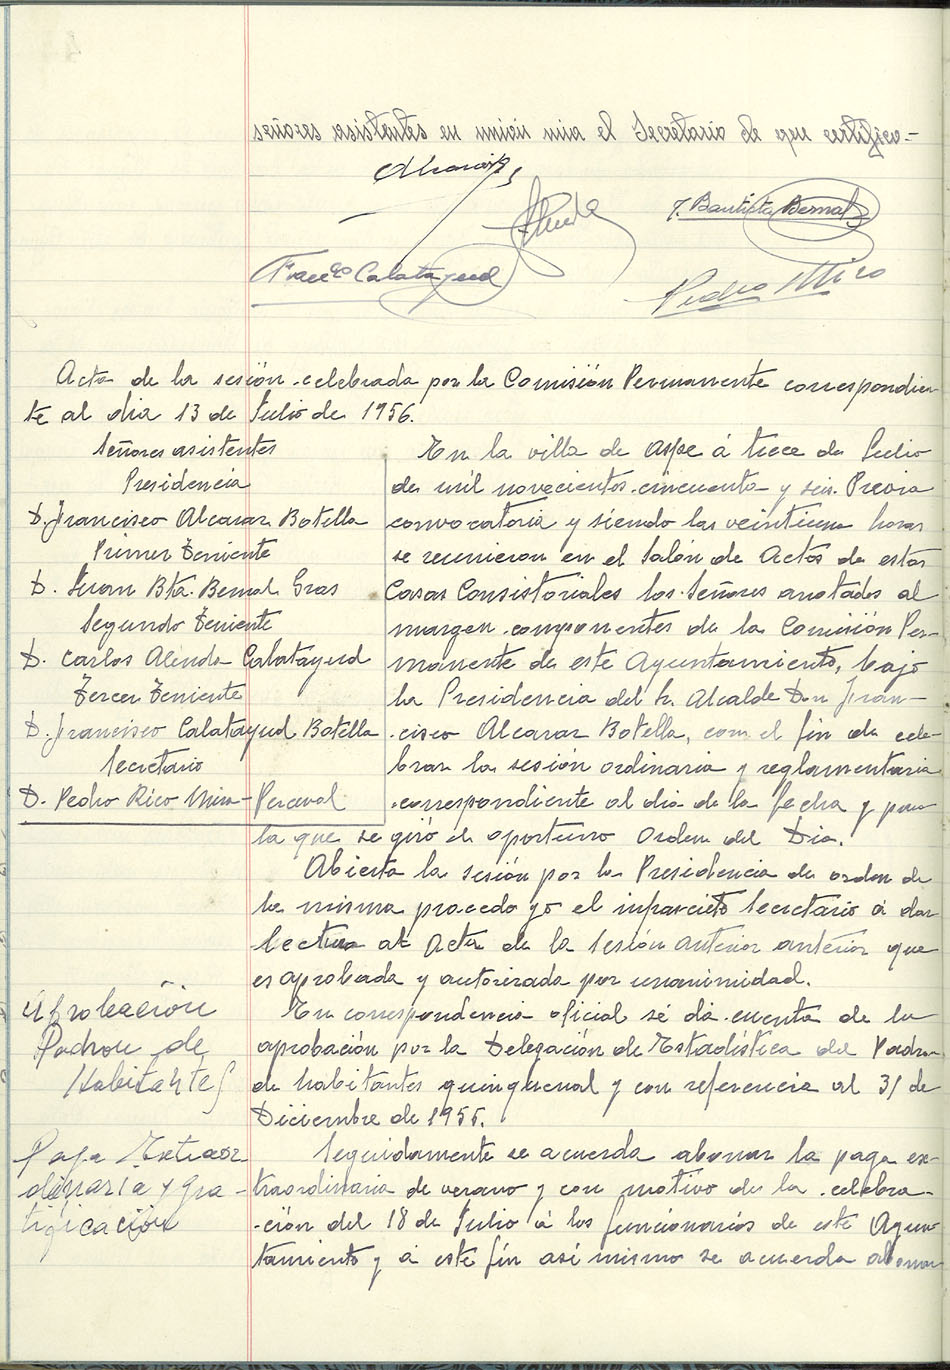 señores asistentes en unión mia el Secretario de que certifico.=
Alcaraz
J. Bautista Bernal
Franco Calatayud
Pedro Rico
Acta de la sesión celebrada por la Comisión Permanente correspondien-
te al dia 13 de Julio de 1956.
Señores asistentes
Presidencia
D. Francisco Alcaraz Botella
Primer Teniente
D. Juan Bta. Bernal Gras
Segundo Teniente
D. Carlos Alenda Calatayud
Tercer Teniente
D. Francisco Calatayud Botella
Secretario
D. Pedro Rico Mira-Perceval
En la villa de Aspe á trece de Julio
de mil novecientos cincuenta y seis. Previa
convocatoria y siendo las veintiuna horas
se reunieron en el Salón de Actos de estas
Casas Consistoriales los Señores anotados al
margen componentes de la Comisión Per-
manente de este Ayuntamiento, bajo
la Presidencia del Sr. Alcalde Don Fran-
cisco Alcaraz Botella, con el fin de cele-
brar la sesión ordinaria y reglamentaria
correspondiente al dia de la fecha y para
la que se giró el oportuno Orden del Dia.
Abierta la sesión por la Presidencia de orden de
la misma procedo yo el infrascrito Secretario á dar
lectura al Acta de la Sesión anterior anterior que
es aprobada y autorizada por unanimidad.
Aprobación
Padron de
Habitantes
En correspondencia oficial se da cuenta de la
aprobación por la Delegación de Estadística del Padron
de habitantes quinquenal y con referencia al 31 de
Diciembre de 1955.
Paga Extraor
dinaria y gra-
tificación
Seguidamente se acuerda abonar la paga ex-
traordinaria de verano y con motivo de la celebra-
ción del 18 de Julio á los funcionarios de este Ayun-
tamiento y á este fin asi mismo se acuerda abonar